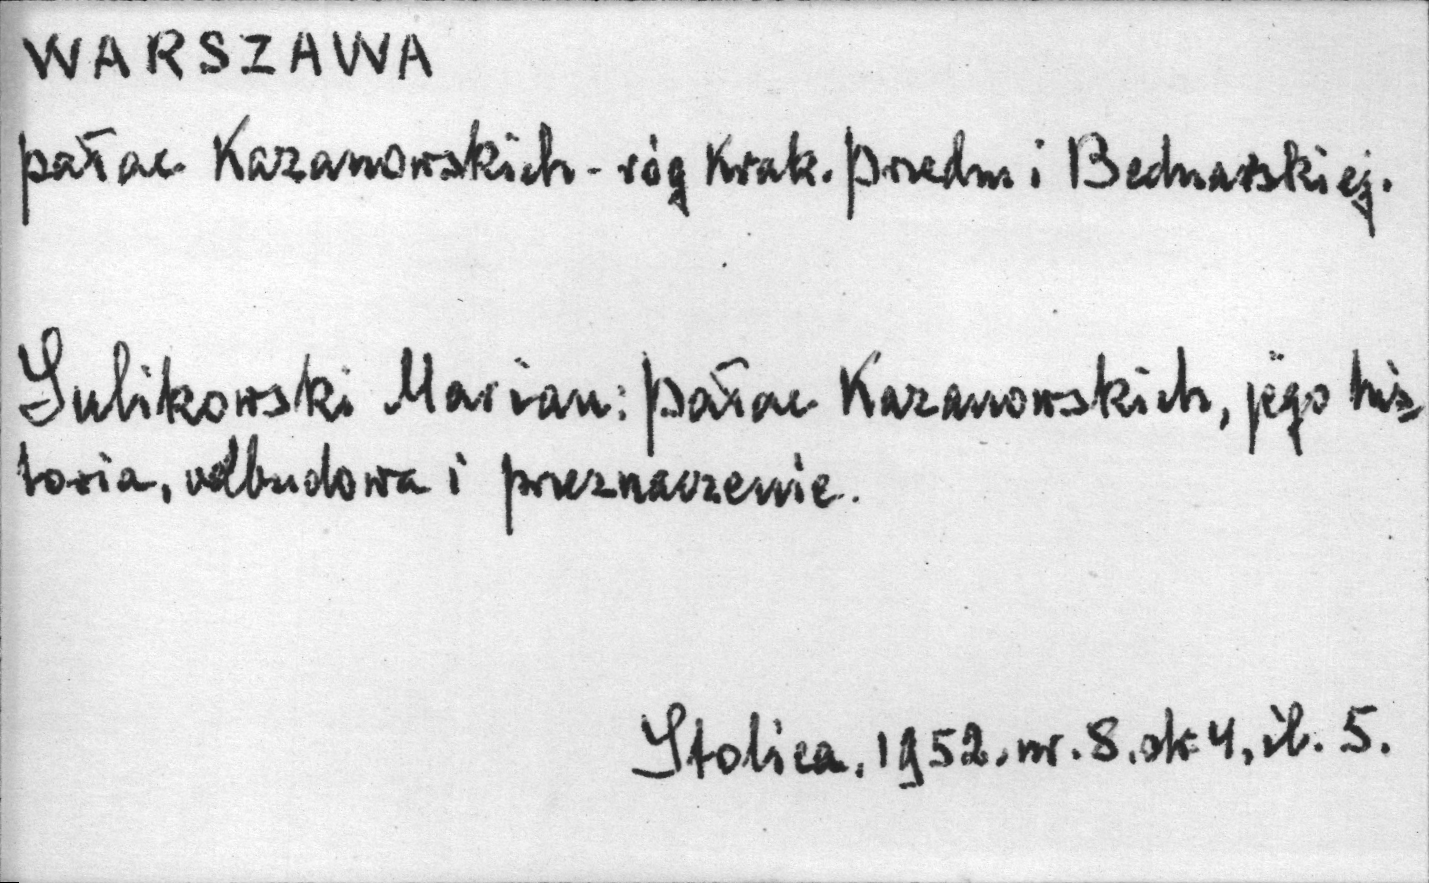 WARSZAWA
pałac Kazanowskich - róg Krak. Przedm i Bednarskiej.
Sulikowski Marian: Pałac Kazanowskich, jego his-
toria, odbudowa i przeznaczenie.
Stolica, 1952. nr. 8. str 4, il. 5.